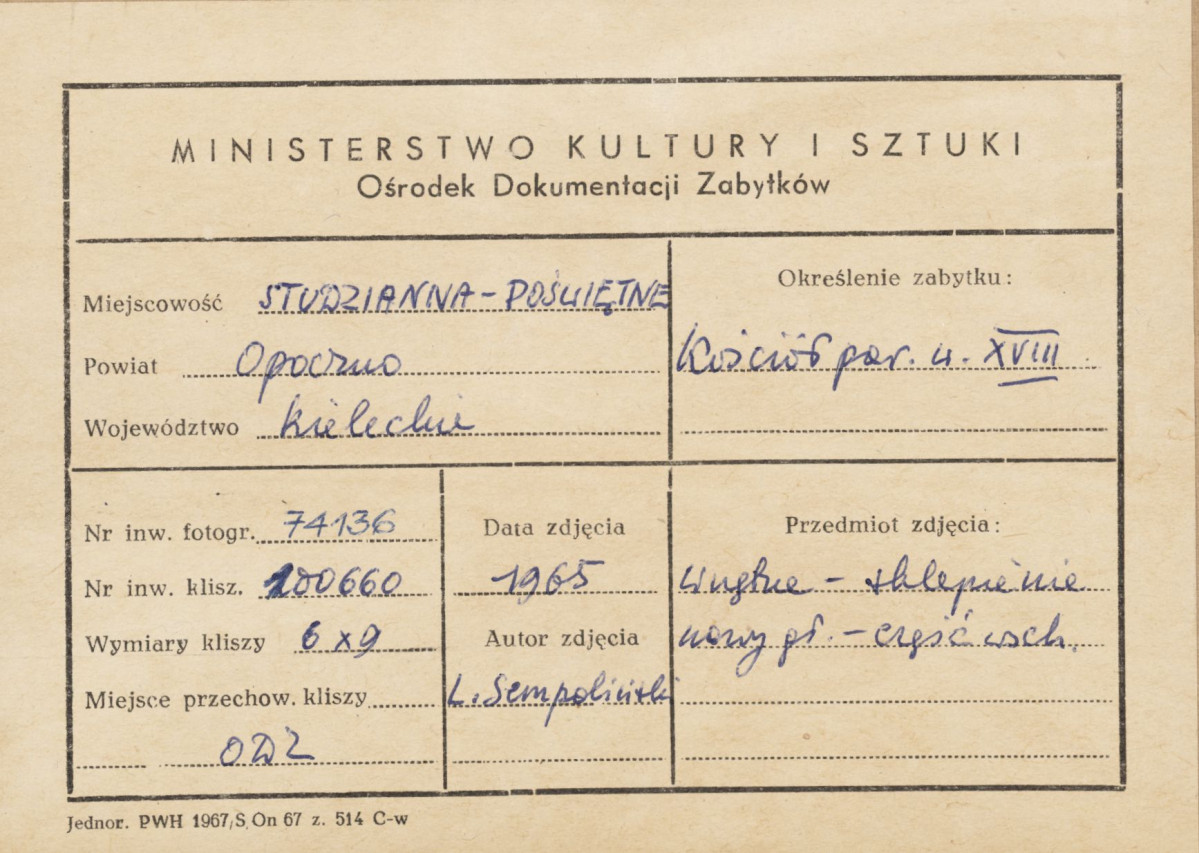 MINISTERSTWO KULTURY I SZTUKI
Ośrodek Dokumentacji Zabytków
Miejscowość STUDZIANNA-POŚWIĘTNE
Powiat Opoczno
Województwo kieleckie
Określenie zabytku:
Kościół par. w. XVIII
Nr inw. fotogr. 74136
Nr inw. klisz. 100660
Wymiary kliszy 6x9
Miejsce przechow. kliszy
ODZ
Data zdjęcia
1965
Autor zdjęcia
L. Sempoliński
Przedmiot zdjęcia:
wnętrze - sklepienie
nawy gł. - część wsch.
Jednor. PWH 1967/S On 67 z. 514 C-w